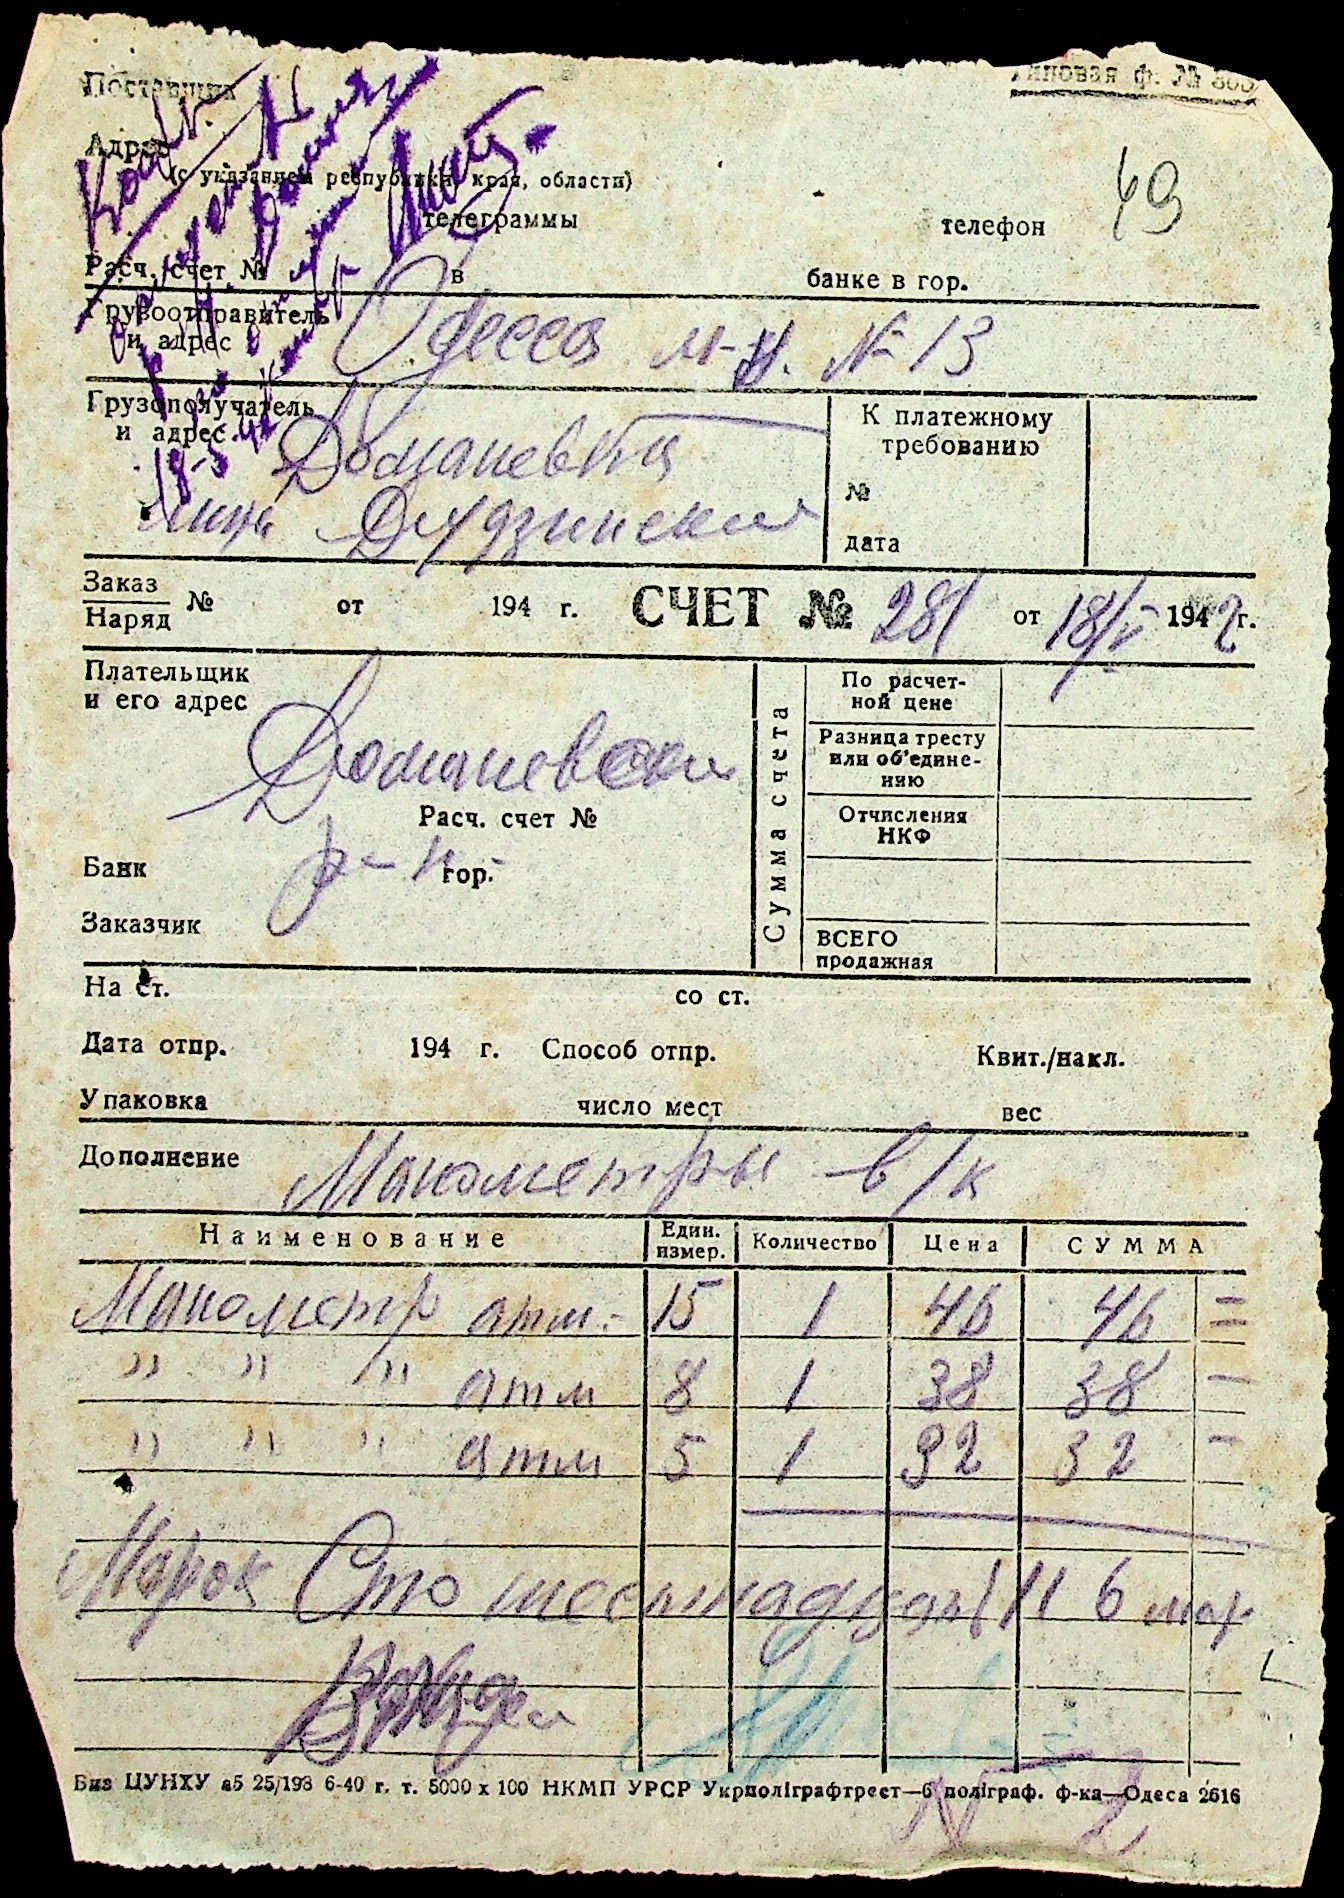 Поставщик
Типовая ф. №
Адрес
(с указанием республики, края, области)
49
телеграммы
телефон
Расч. счет № в банке в гор.
Грузоотправитель
и адрес
Одесса м-н. № 13
Грузополучатель
и адрес
Доманевка
К платежному
требованию
№
дата
18-5-42
Заказ
Наряд
№ от 194 г. СЧЕТ № 281 от 18/V 1942 г.
Плательщик
и его адрес
Доманевский
Расч. счет №
р-н
Банк гор.
Заказчик
Сумма счета
По расчет-
ной цене
Разница тресту
или об'едине-
нию
Отчисления
НКФ
ВСЕГО
продажная
На ст. со ст.
Дата отпр. 194 г. Способ отпр. Квит./накл.
Упаковка число мест вес
Дополнение Манометры в/к
Наименование Един. измер. Количество Цена СУММА
Манометр атм. 15 1 46 46 =
" " " атм 8 1 38 38 -
" " " атм 5 1 32 32 -
Марок Сто шестнадцать 116 мар
Биз ЦУНХУ а5 25/193 6-40 г. т. 5000 х 100 НКМП УРСР Укрполіграфтрест—6 поліграф. ф-ка—Одеса 2616